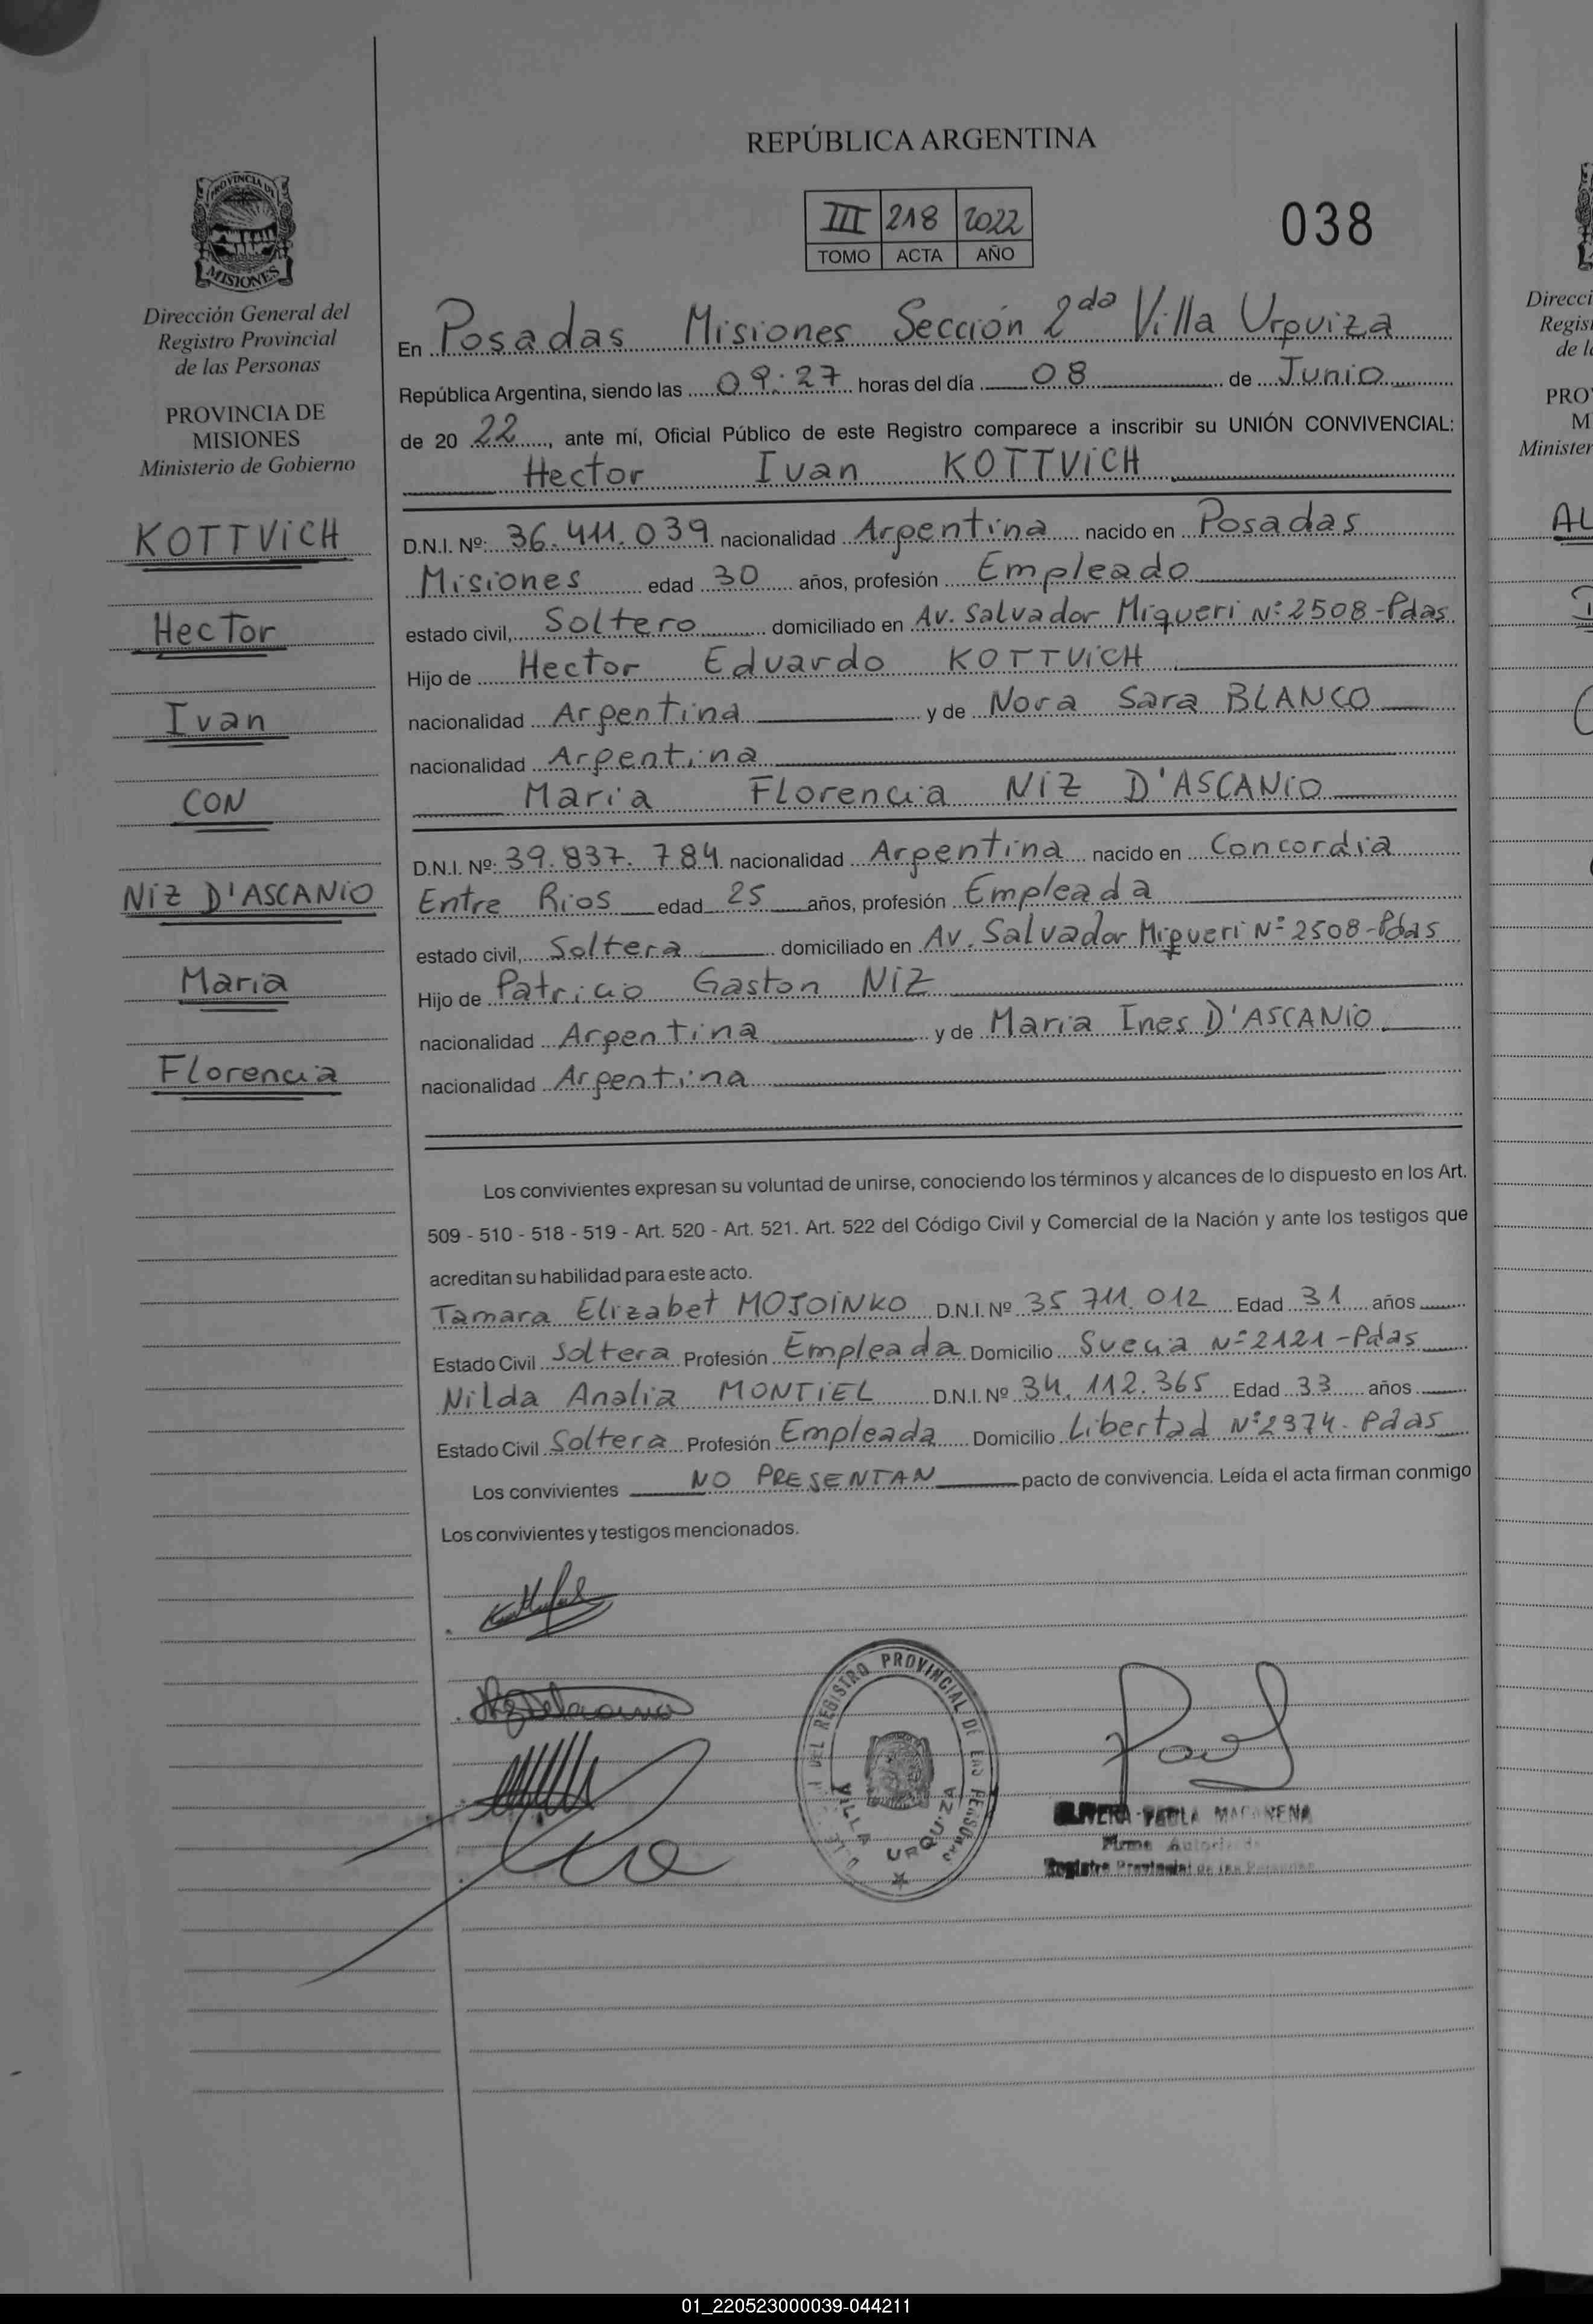 REPÚBLICA ARGENTINA
III 218 2022
TOMO ACTA AÑO
038
PROVINCIA DE
MISIONES
Dirección General del
Registro Provincial
de las Personas
PROVINCIA DE
MISIONES
Ministerio de Gobierno
KOTTVICH
Hector
Ivan
CON
NIZ D'ASCANIO
Maria
Florencia
En Posadas Misiones Sección 2da Villa Urquiza
República Argentina, siendo las 09:27 horas del día 08 de Junio
de 20 22, ante mí, Oficial Público de este Registro comparece a inscribir su UNIÓN CONVIVENCIAL:
Hector Ivan KOTTVICH
D.N.I. Nº: 36.411.039 nacionalidad Argentina nacido en Posadas
Misiones edad 30 años, profesión Empleado
estado civil, Soltero domiciliado en Av. Salvador Miqueri Nº 2508-Pdas
Hijo de Hector Eduardo KOTTVICH
nacionalidad Argentina y de Nora Sara BLANCO
nacionalidad Argentina
Maria Florencia NIZ D'ASCANIO
D.N.I. Nº: 39.837.784 nacionalidad Argentina nacido en Concordia
Entre Rios edad 25 años, profesión Empleada
estado civil, Soltera domiciliado en Av. Salvador Miqueri Nº 2508-Pdas
Hijo de Patricio Gaston NIZ
nacionalidad Argentina y de Maria Ines D'ASCANIO
nacionalidad Argentina
Los convivientes expresan su voluntad de unirse, conociendo los términos y alcances de lo dispuesto en los Art.
509 - 510 - 518 - 519 - Art. 520 - Art. 521. Art. 522 del Código Civil y Comercial de la Nación y ante los testigos que
acreditan su habilidad para este acto.
Tamara Elizabet MOJOINKO D.N.I. Nº 35 711.012 Edad 31 años
Estado Civil Soltera Profesión Empleada Domicilio Suecia Nº 2121-Pdas
Nilda Analia MONTIEL D.N.I. Nº 34.112.365 Edad 33 años
Estado Civil Soltera Profesión Empleada Domicilio Libertad Nº 2374-Pdas
Los convivientes NO PRESENTAN pacto de convivencia. Leída el acta firman conmigo
Los convivientes y testigos mencionados.
REGISTRO PROVINCIAL DE LAS PERSONAS
VILLA URQUIZA
OLIVERA PAOLA MACARENA
Firma Autorizada
Registro Provincial de las Personas
Direcci
Regis
de l
PRO
M
Minister
AL
01_220523000039-044211